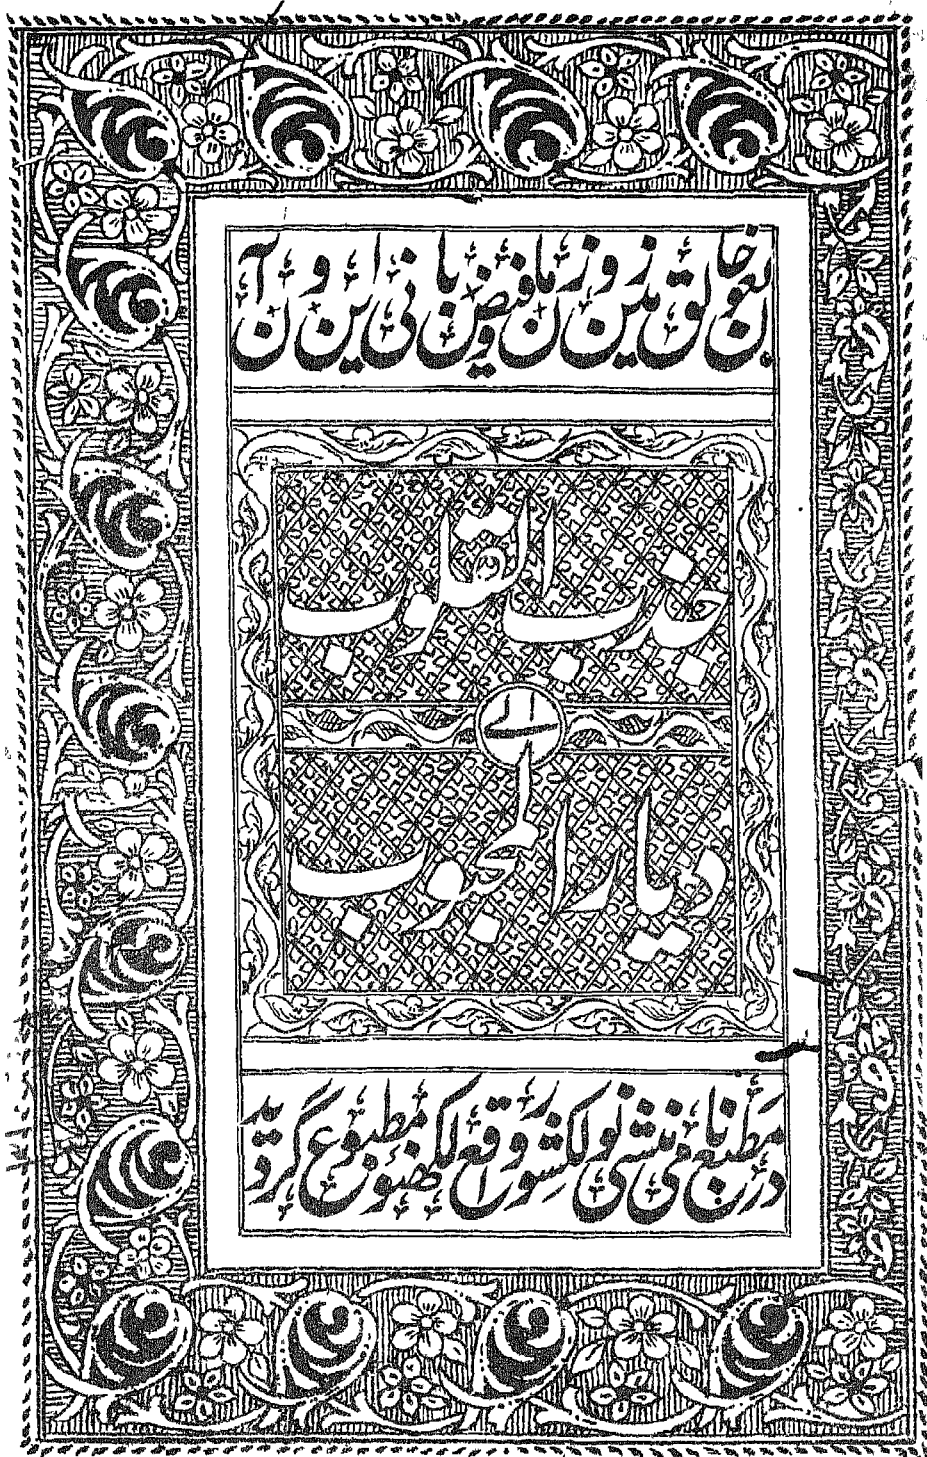 بعون خالق زمین و زمان و فیض بانی این و آن
جذب القلوب
الی
دیار المحبوب
در مطبع نامی منشی نولکشور واقع لکھنؤ مطبوع گردید